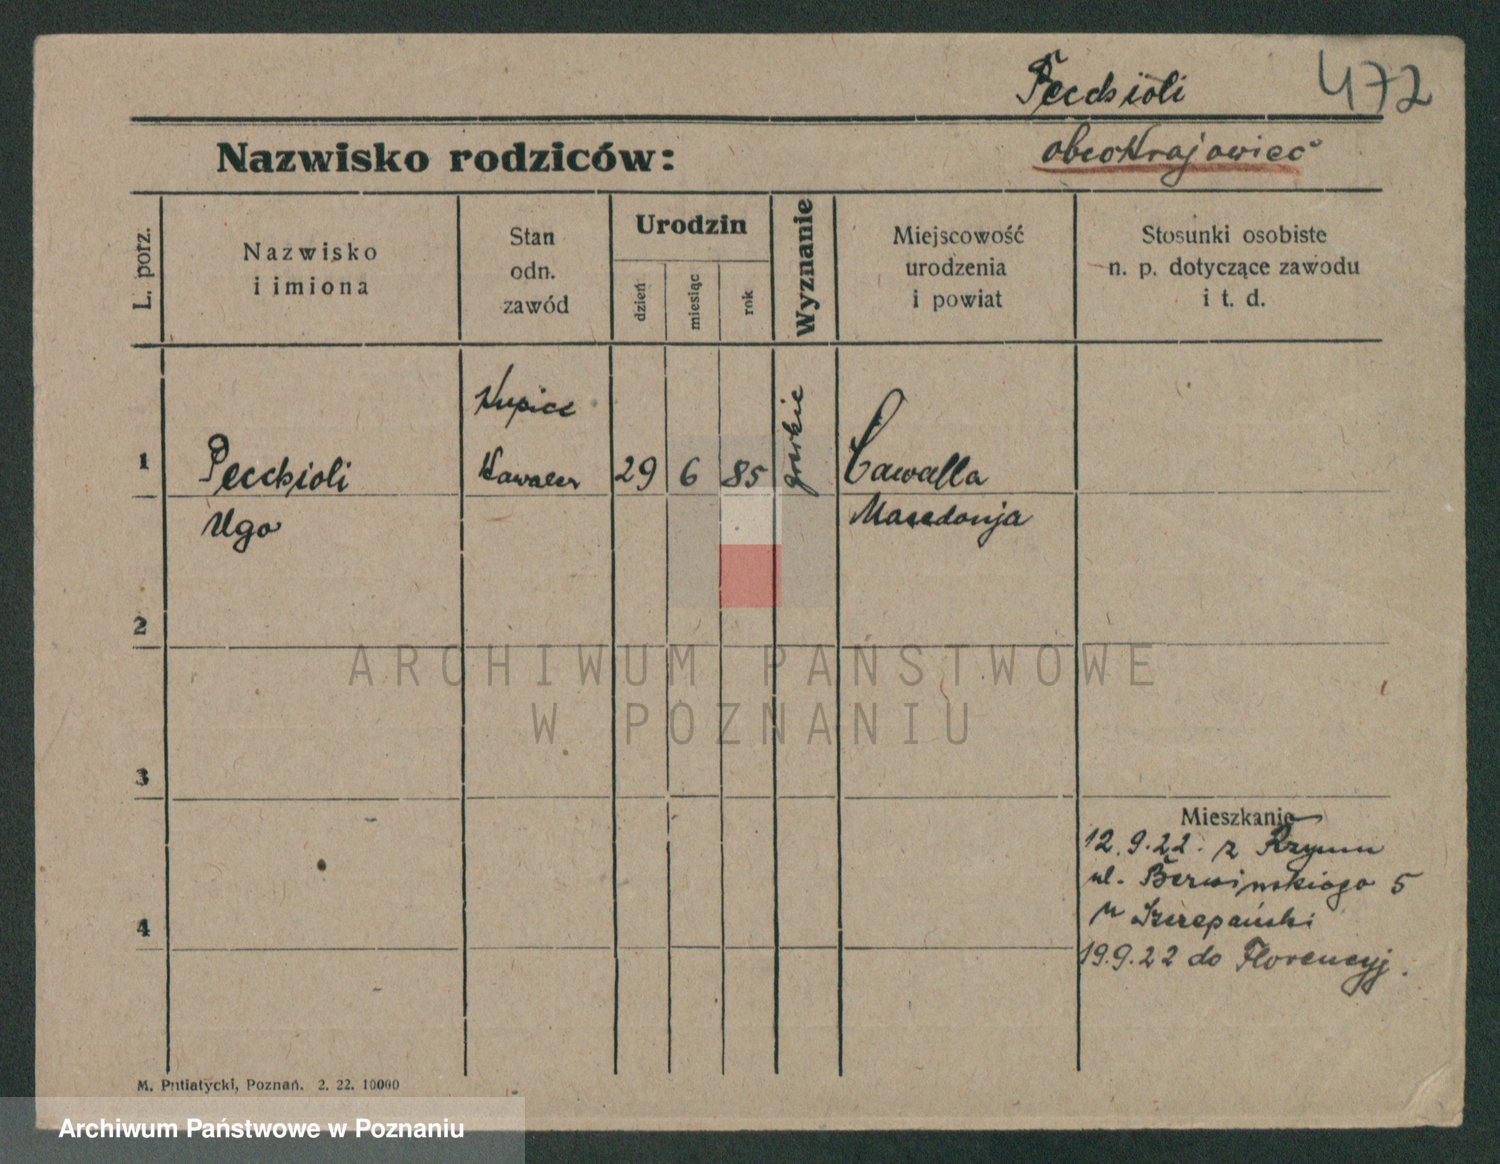 Pecchioli
472
Nazwisko rodziców:
obcokrajowiec
L. porz.
Nazwisko
i imiona
Stan
odn.
zawód
Urodzin
dzień
miesiąc
rok
Wyznanie
Miejscowość
urodzenia
i powiat
Stosunki osobiste
n. p. dotyczące zawodu
i t. d.
Kupiec
1 Pecchioli Kawaler 29 6 85 Cawalla
Ugo Macedonja
2
ARCHIWUM PAŃSTWOWE
W POZNANIU
3
Mieszkanie
12.9.22. z Rzymu
ul. Berwińskiego 5
u Szczepański
4
19.9.22 do Florencyj.
M. Putiatycki, Poznań. 2. 22. 10000
Archiwum Państwowe w Poznaniu